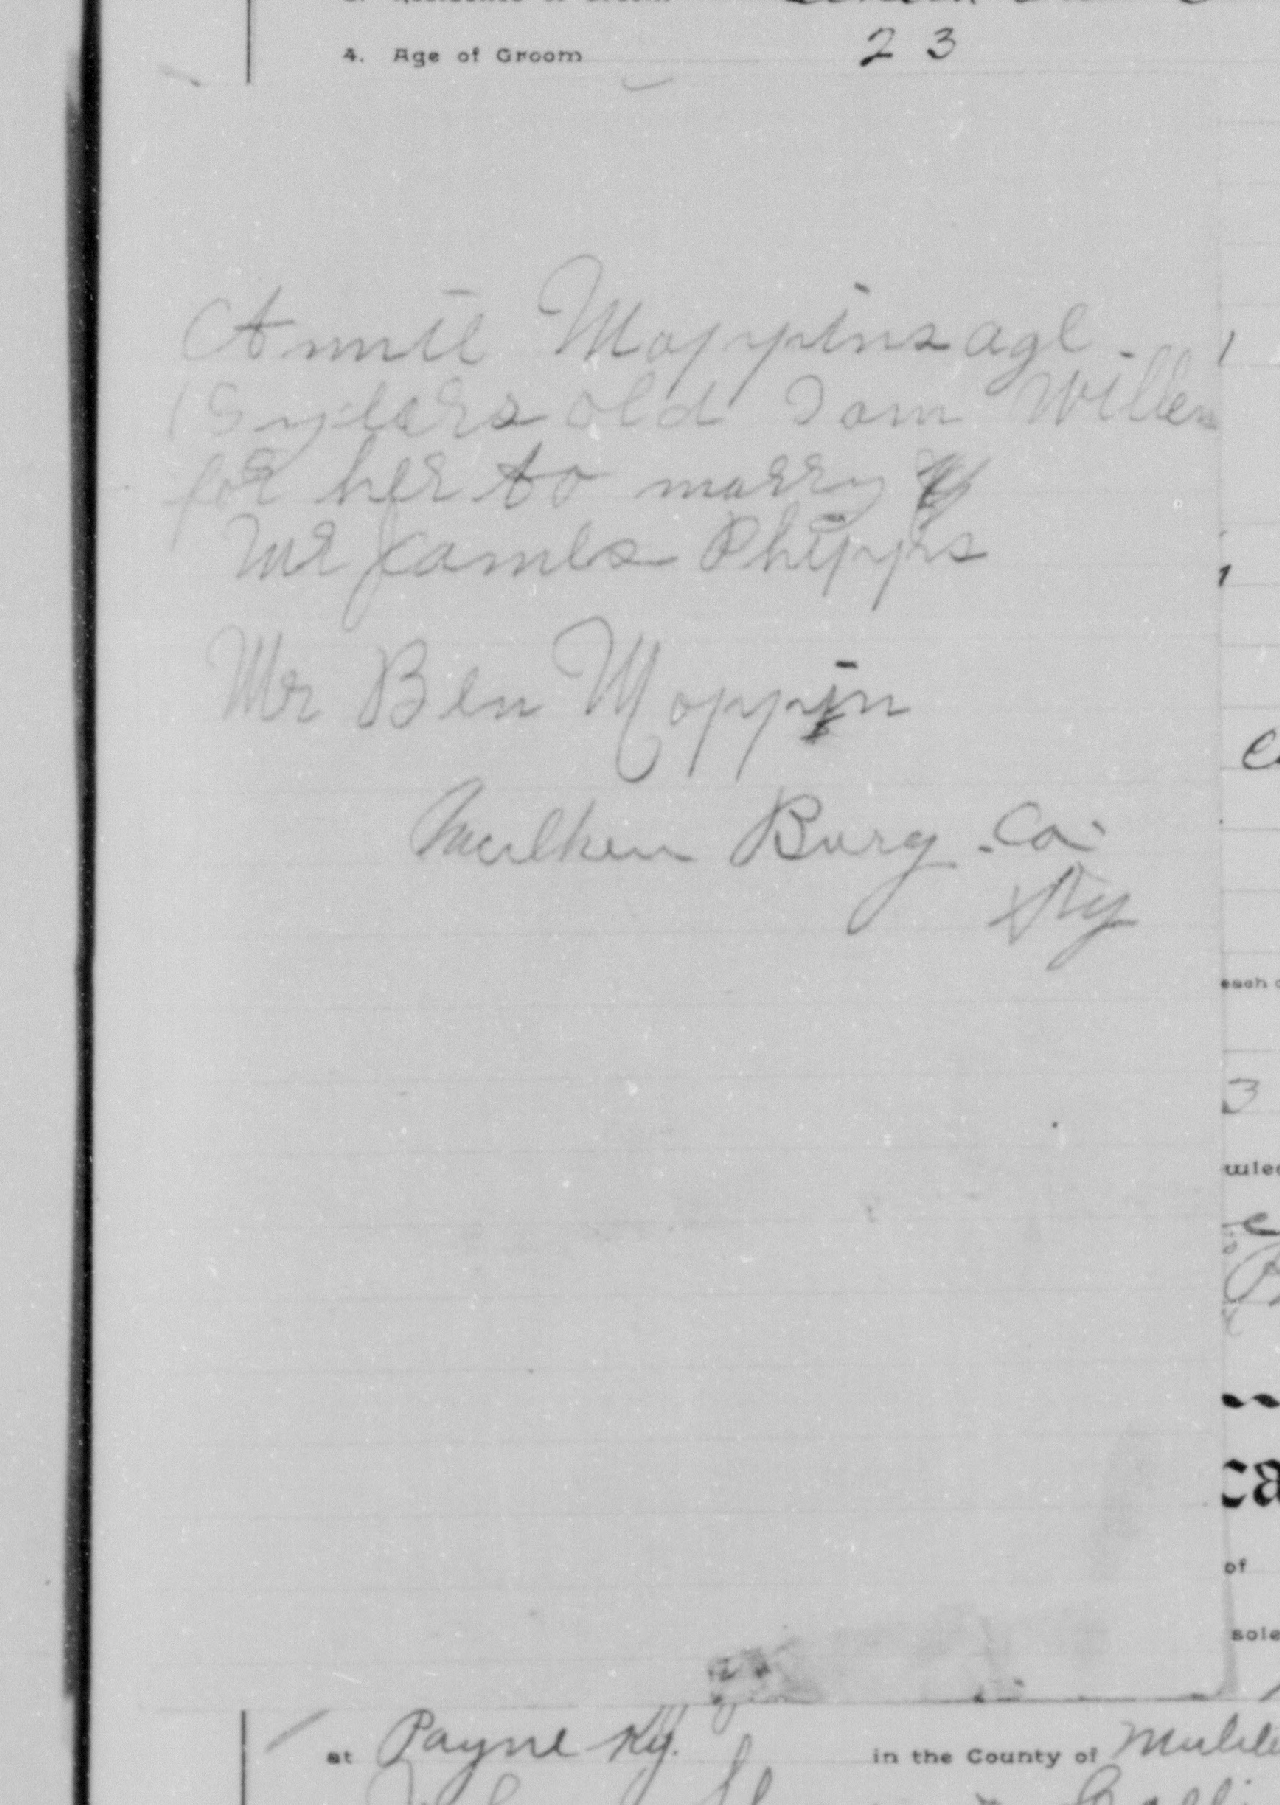 4. Age of Groom 23
Annie Moppins age.
15 years old I am Willen
for her to marry
Mr James Phipps
Mr Ben Moppin
Mulhen Burg. Co.
Ky
at Payne Ky. in the County of
of
sole